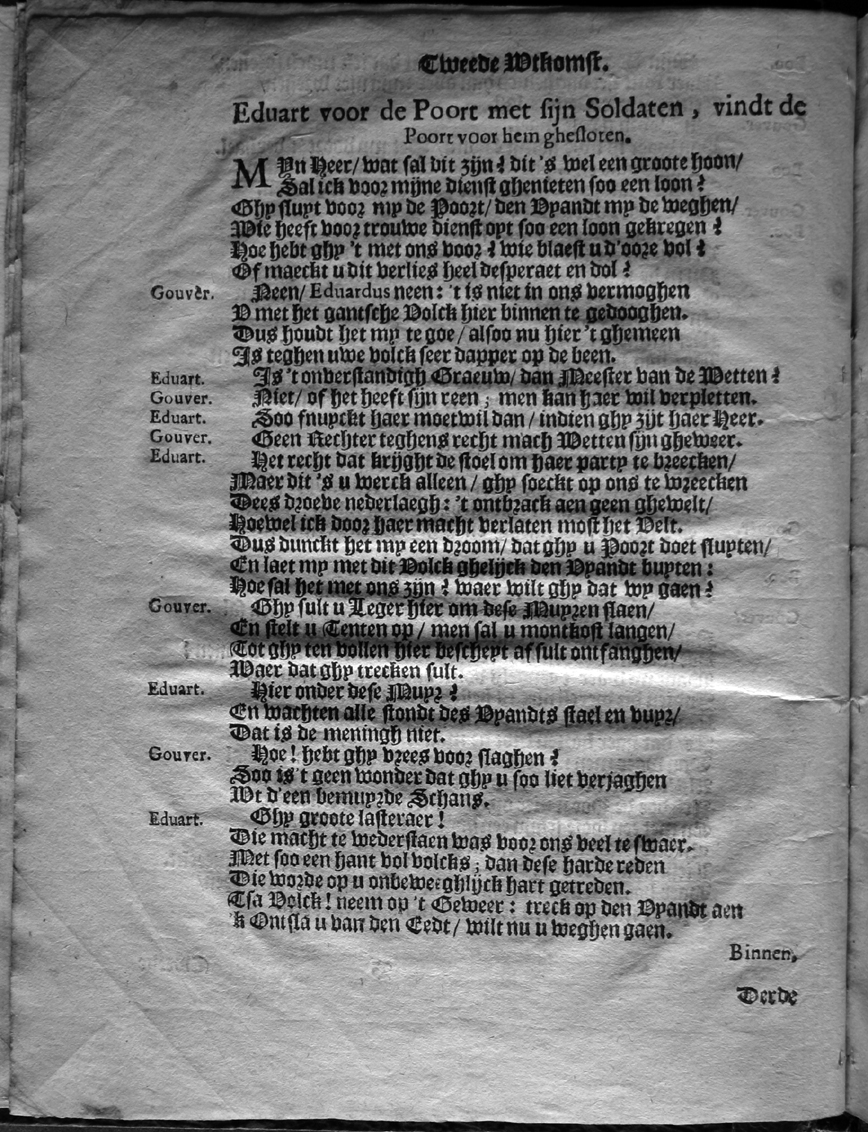 Tweede Wtkomst.
Eduart voor de Poort met sijn Soldaten, vindt de
Poort voor hem ghesloten.
MYn Heer/ wat sal dit zijn? dit 's wel een groote hoon/
Sal ick voor mijne dienst ghenieten soo een loon?
Ghy sluyt voor my de Poort/ den Vyandt my de weghen/
Wie heeft voor trouwe dienst oyt soo een loon gekregen?
Hoe hebt ghy 't met ons voor? wie blaest u d'oore vol?
Of maeckt u dit verlies heel desperaet en dol?
Gouver. Neen/ Eduardus neen: 't is niet in ons vermoghen
V met het gantsche Volck hier binnen te gedooghen.
Dus houdt het my te goe/ alsoo nu hier 't ghemeen
Is teghen uwe volck seer dapper op de been.
Eduart. Is 't onverstandigh Graeuw/ dan Meester van de Wetten?
Gouver. Niet/ of het heeft sijn reen; men kan haer wil verpletten.
Eduart. Soo snuyckt haer moetwil dan/ indien ghy zijt haer Heer.
Gouver. Geen Rechter teghens recht mach Wetten sijn gheweer.
Eduart. Het recht dat krijght de stoel om haer party te breecken/
Maer dit 's u werck alleen/ ghy soeckt op ons te wreecken
Dees droeve nederlaegh: 't ontbrack aen geen ghewelt/
Hoewel ick door haer macht verlaten most het Velt.
Dus dunckt het my een droom/ dat ghy u Poort doet sluyten/
En laet my met dit Volck ghelijck den Vyandt buyten:
Hoe sal het met ons zijn? waer wilt ghy dat wy gaen?
Gouver. Ghy sult u Leger hier om dese Muyren slaen/
En stelt u Tenten op/ men sal u montkost langen/
Tot ghy ten vollen hier bescheyt af sult ontfanghen/
Waer dat ghy trecken sult.
Eduart. Hier onder dese Muyr?
En wachten alle stondt des Vyandts stael en vuyr/
Dat is de meningh niet.
Gouver. Hoe! hebt ghy vrees voor slaghen?
Soo is't geen wonder dat ghy u soo liet verjaghen
Wt d'een bemuyrde Schans.
Eduart. Ghy groote lasteraer!
Die macht te wederstaen was voor ons veel te swaer.
Met soo een hant vol volcks; dan dese harde reden
Die worde op u onbeweeghlijck hart getreden.
Tsa Volck! neem op 't Geweer: treck op den Vyandt aen
'k Ontsla u van den Eedt/ wilt nu u weghen gaen.
Binnen,
Derde